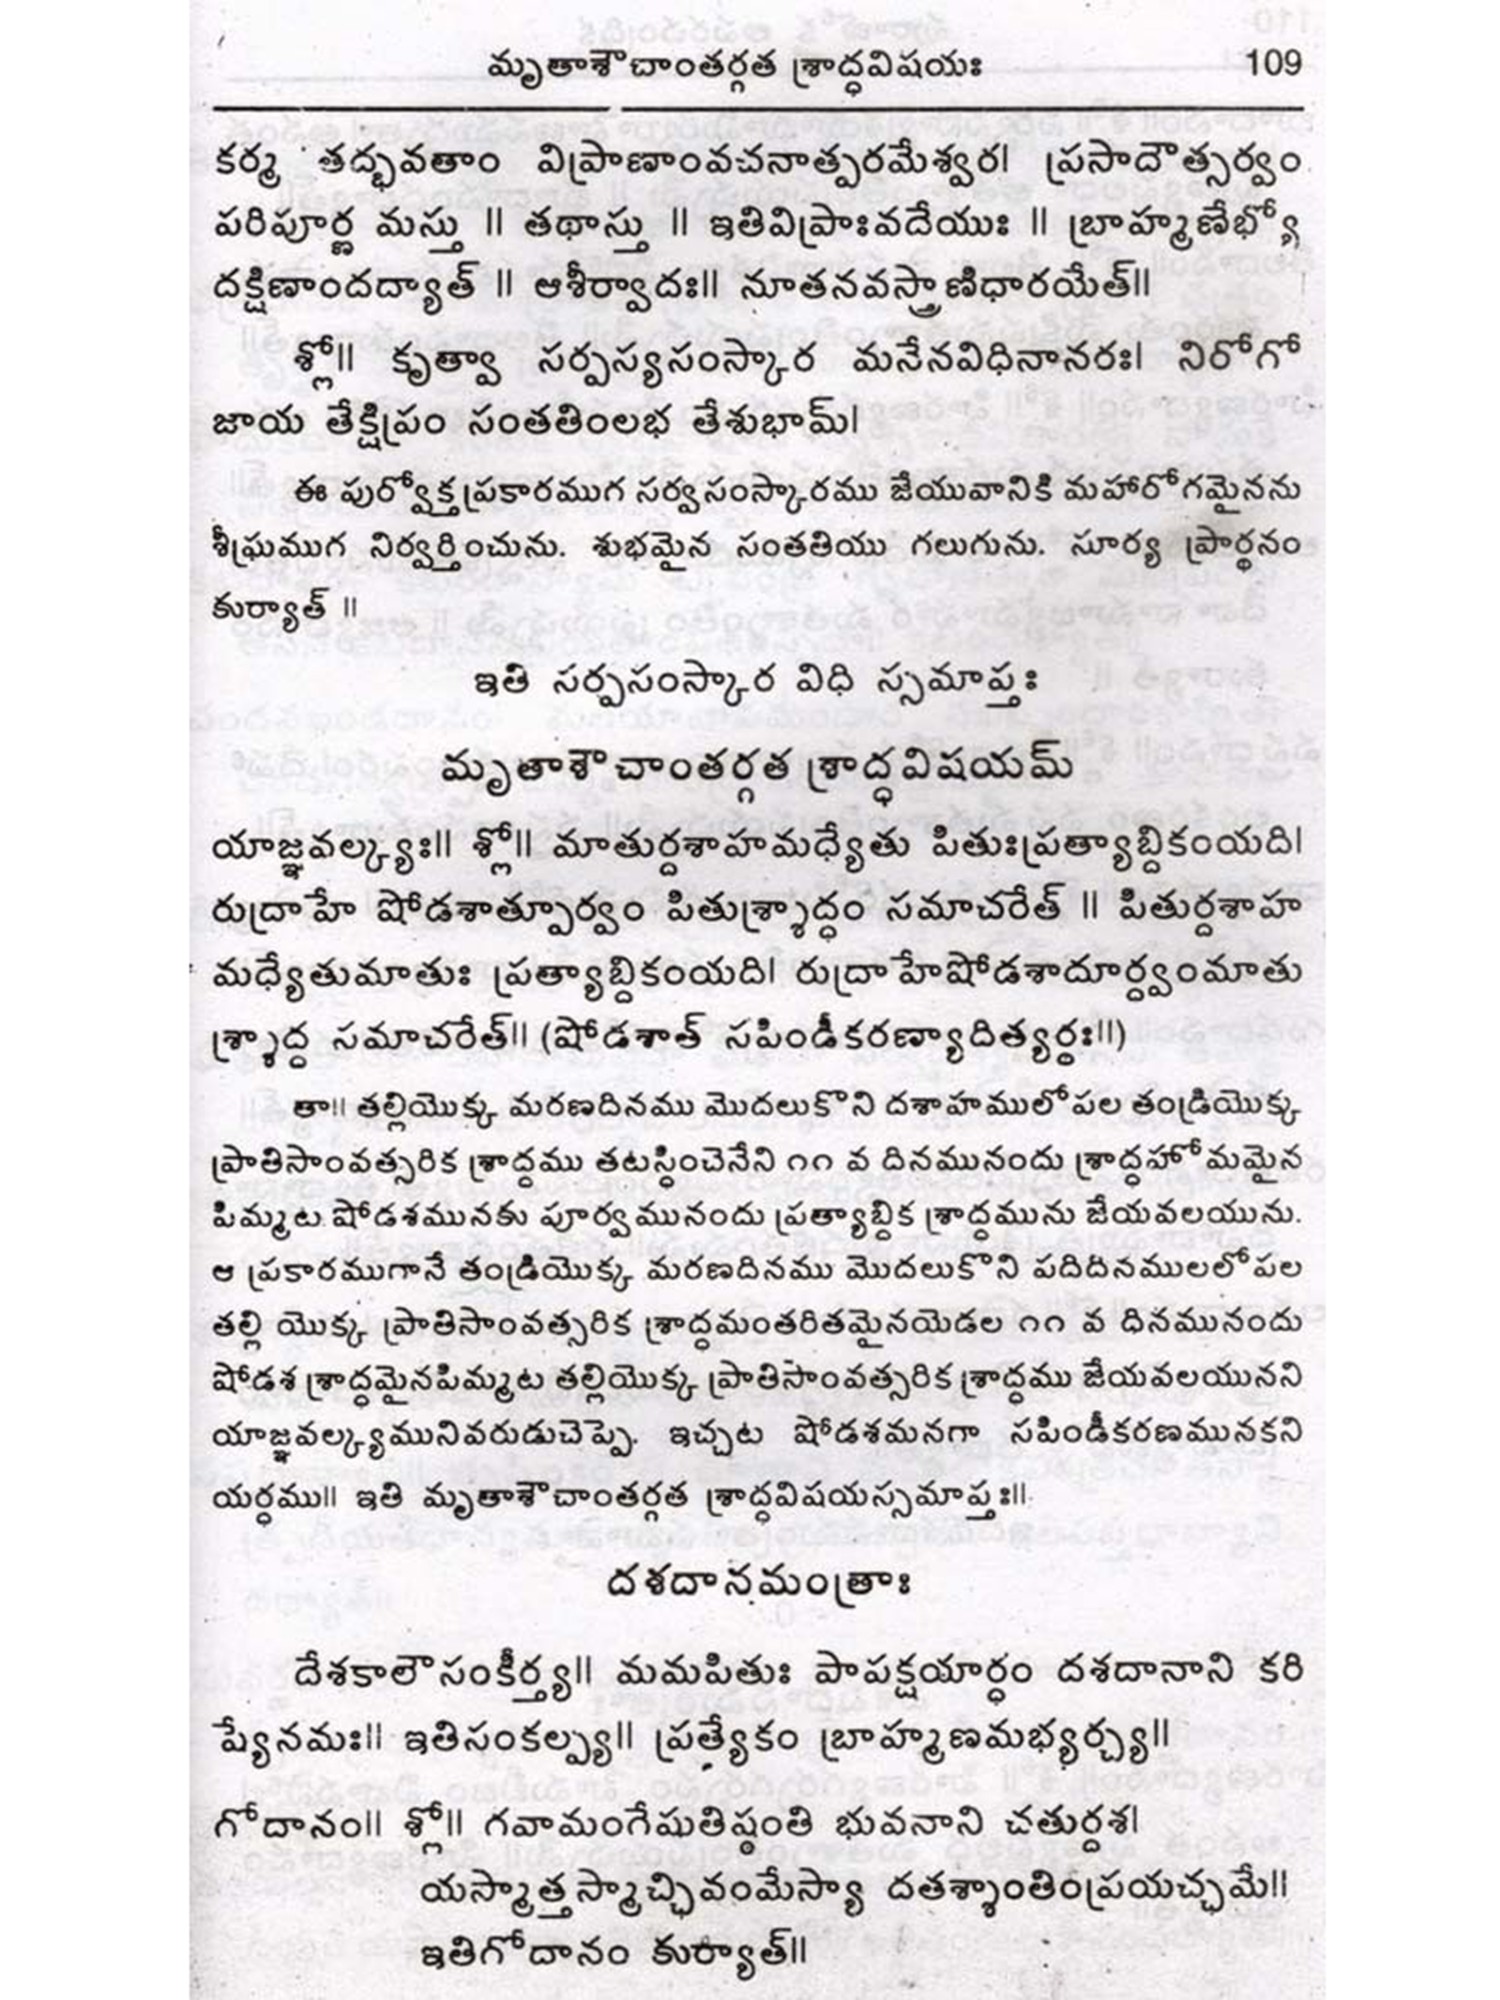 మృతాశౌచాంతర్గత శ్రాద్ధవిషయః 109
కర్మ తద్భవతాం విప్రాణాంవచనాత్పరమేశ్వర। ప్రసాదౌత్సర్వం
పరిపూర్ణ మస్తు ॥ తథాస్తు ॥ ఇతివిప్రాఃవదేయుః ॥ బ్రాహ్మణేభ్యో
దక్షిణాందద్యాత్ ॥ ఆశీర్వాదః॥ నూతనవస్త్రాణిధారయేత్॥
శ్లో॥ కృత్వా సర్పస్యసంస్కార మనేనవిధినానరః। నిరోగో
జాయ తేక్షిప్రం సంతతింలభ తేశుభామ్।
ఈ పుర్వోక్తప్రకారముగ సర్వసంస్కారము జేయువానికి మహారోగమైనను
శీఘ్రముగ నిర్వర్తించును. శుభమైన సంతతియు గలుగును. సూర్య ప్రార్థనం
కుర్యాత్ ॥
ఇతి సర్పసంస్కార విధి స్సమాప్తః
మృతాశౌచాంతర్గత శ్రాద్ధవిషయమ్
యాజ్ఞవల్క్యః॥ శ్లో॥ మాతుర్దశాహమధ్యేతు పితుఃప్రత్యాబ్దికంయది।
రుద్రాహే షోడశాత్పూర్వం పితుశ్శ్రాద్ధం సమాచరేత్ ॥ పితుర్దశాహ
మధ్యేతుమాతుః ప్రత్యాబ్దికంయది। రుద్రాహేషోడశాదూర్ధ్వంమాతు
శ్శ్రాద్ధ సమాచరేత్॥ (షోడశాత్ సపిండీకరణ్యాదిత్యర్థః॥)
తా॥ తల్లియొక్క మరణదినము మొదలుకొని దశాహములోపల తండ్రియొక్క
ప్రాతిసాంవత్సరిక శ్రాద్ధము తటస్థించెనేని ౧౧ వ దినమునందు శ్రాద్ధహోమమైన
పిమ్మట షోడశమునకు పూర్వమునందు ప్రత్యాబ్దిక శ్రాద్ధమును జేయవలయును.
ఆ ప్రకారముగానే తండ్రియొక్క మరణదినము మొదలుకొని పదిదినములలోపల
తల్లి యొక్క ప్రాతిసాంవత్సరిక శ్రాద్ధమంతరితమైనయెడల ౧౧ వ ధినమునందు
షోడశ శ్రాద్ధమైనపిమ్మట తల్లియొక్క ప్రాతిసాంవత్సరిక శ్రాద్ధము జేయవలయునని
యాజ్ఞవల్క్యమునివరుడుచెప్పె. ఇచ్చట షోడశమనగా సపిండీకరణమునకని
యర్థము॥ ఇతి మృతాశౌచాంతర్గత శ్రాద్ధవిషయస్సమాప్తః॥
దశదానమంత్రాః
దేశకాలౌసంకీర్త్య॥ మమపితుః పాపక్షయార్ధం దశదానాని కరి
ష్యేనమః॥ ఇతిసంకల్ప్య॥ ప్రత్యేకం బ్రాహ్మణమభ్యర్చ్య॥
గోదానం॥ శ్లో॥ గవామంగేషుతిష్ఠంతి భువనాని చతుర్దశ।
యస్మాత్తస్మాచ్ఛివంమేస్యా దతశ్శాంతింప్రయచ్ఛమే॥
ఇతిగోదానం కుర్యాత్॥